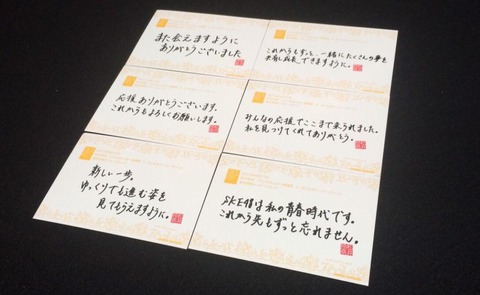 また会えますように
ありがとうございました
これからもずっと、一緒にたくさんの夢を
共有し成長できますように。
応援ありがとうございます。
これからもよろしくお願いします。
みんなの応援でここまで来られました。
私を見つけてくれてありがとう。
新しい一歩。
ゆっくりでも進む姿を
見てもらえますように。
SKE48は私の青春時代です。
これから先もずっと忘れません。